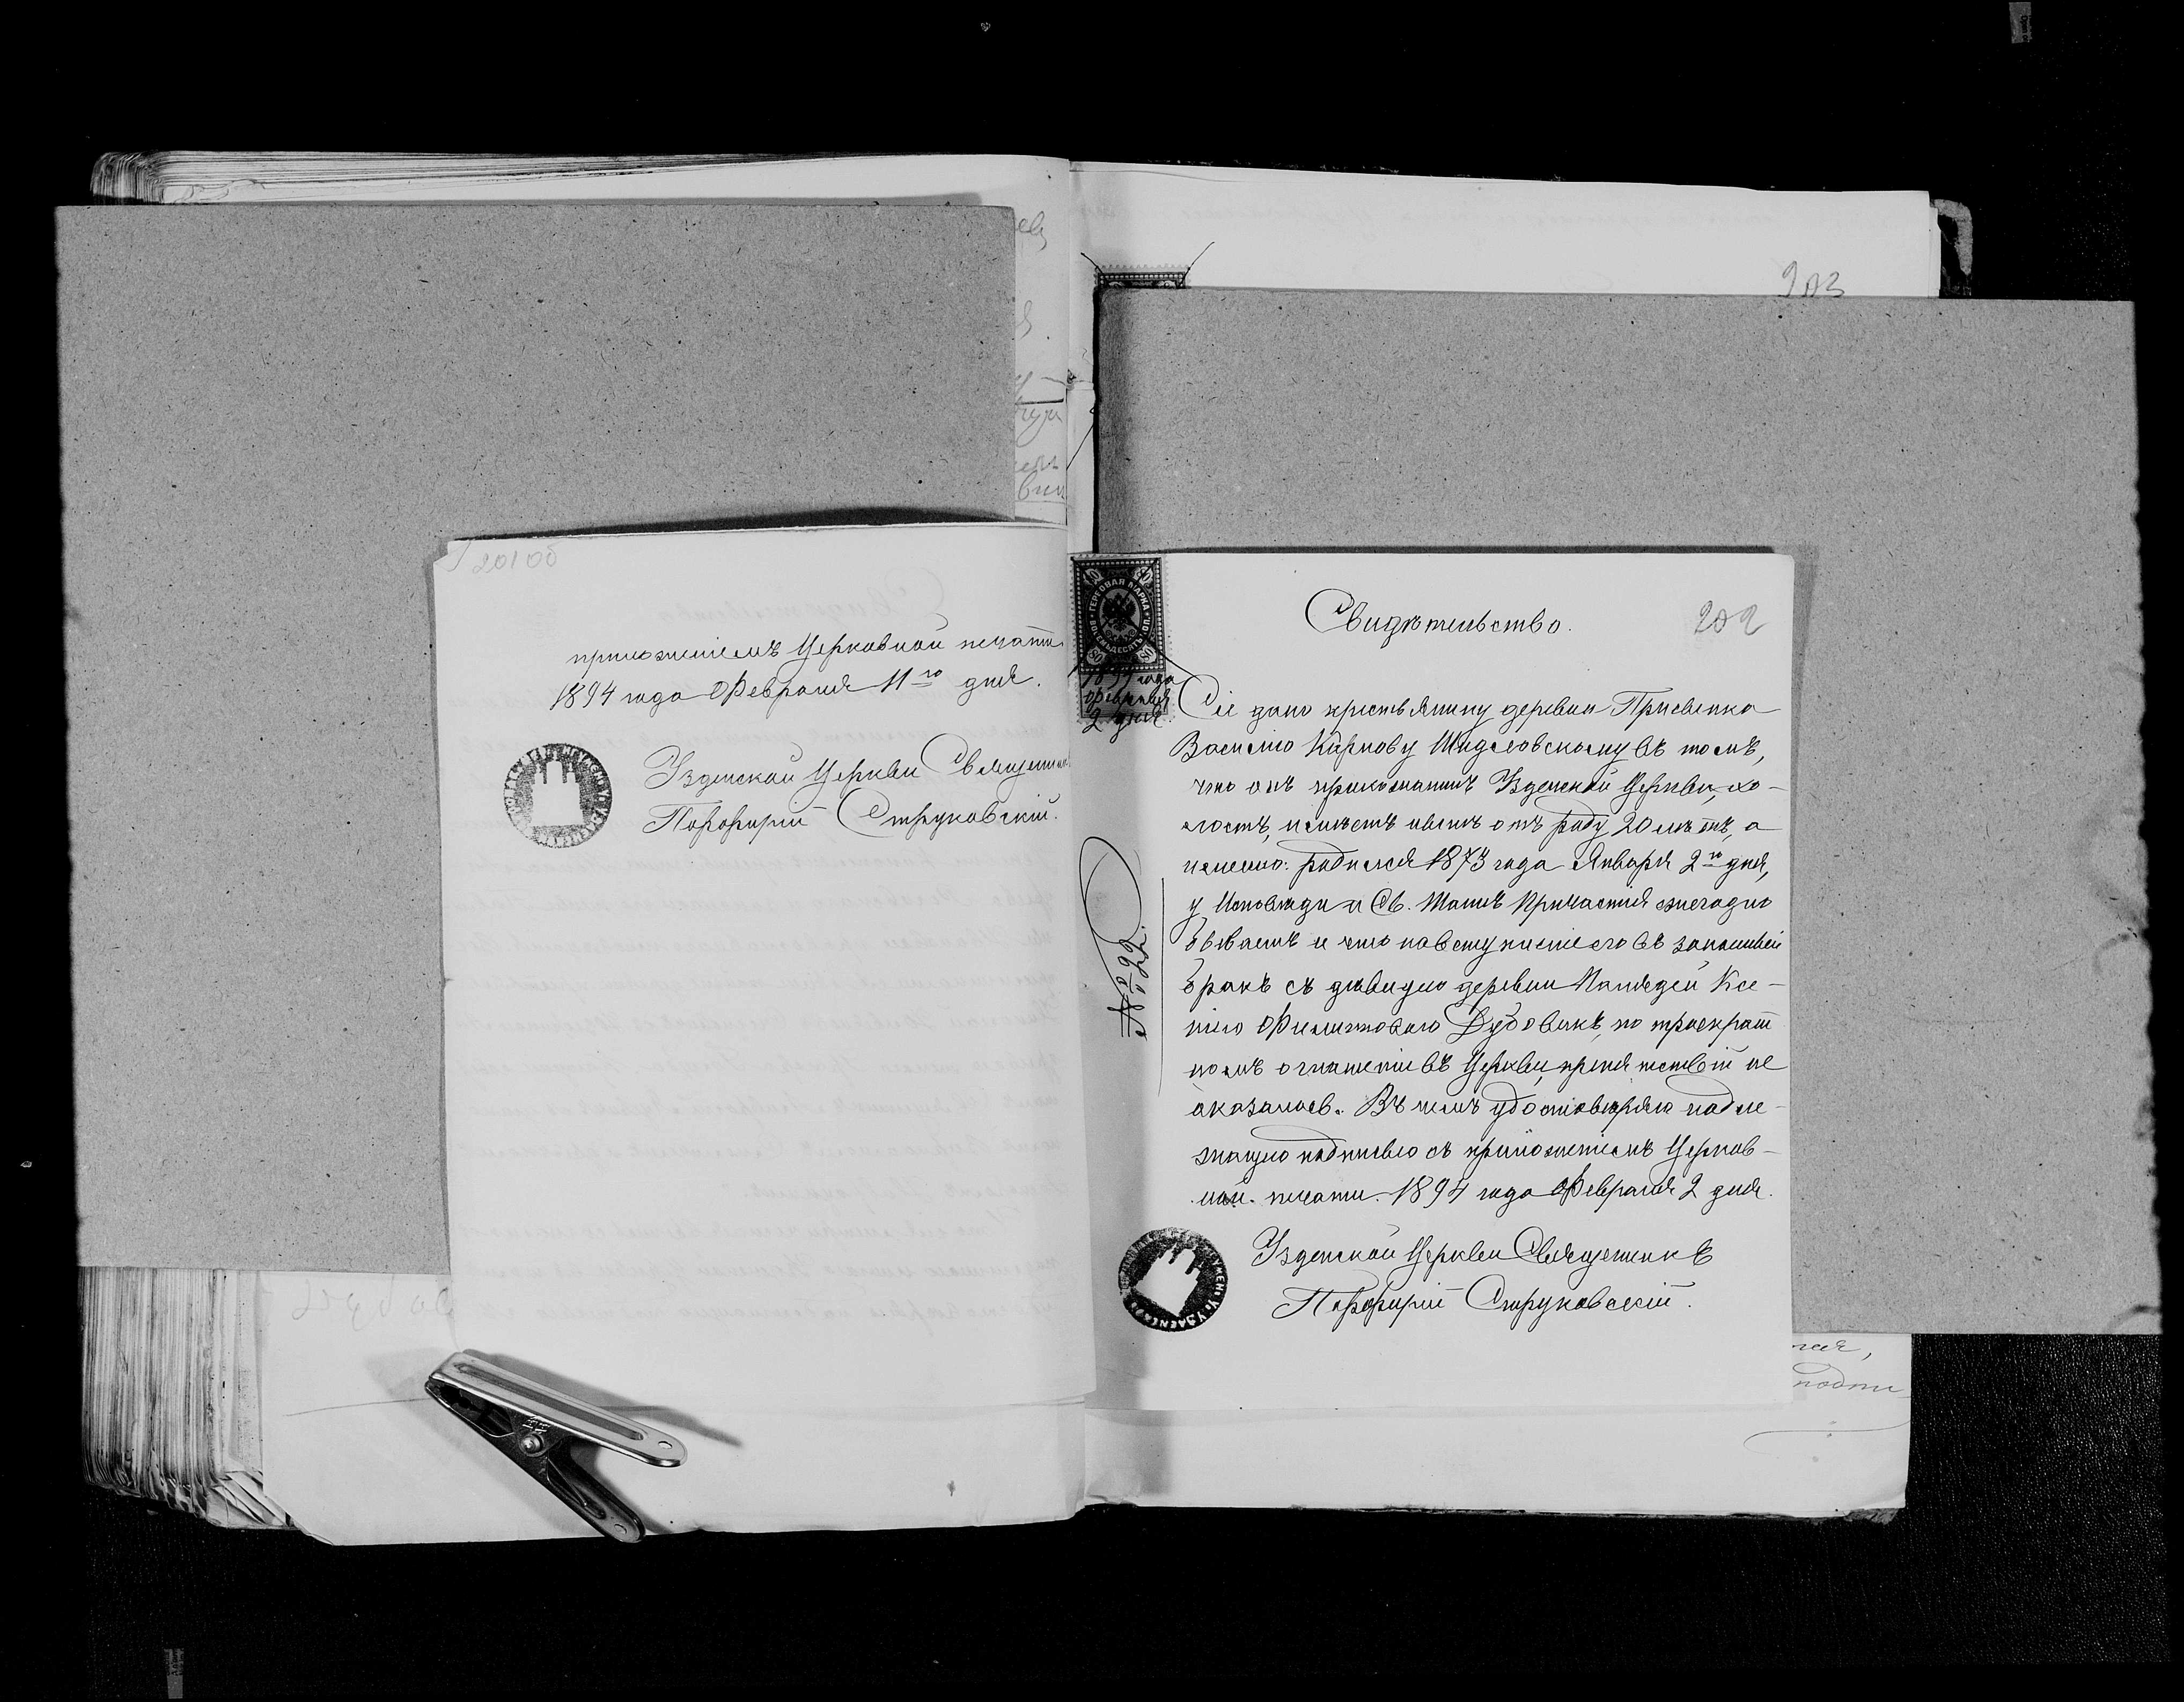 201 об
приложеніемъ Церковной печати
1894 года Февраля 11го дня.
Узденской Церкви Священник
Порфирій Струковскій.
203
ГЕРБОВАЯ МАРКА
ВОСЕМЬДЕСЯТЪ
80
80
1894 года
Февраля
2 дня
Свидѣтельство.
202
Сіе дано крестьянину деревни Присынка
Василію Карпову Шидловскому въ томъ,
что онъ прихожанинъ Узденской Церкви, хо-
лостъ, имѣетъ нынѣ отъ роду 20 лѣтъ, а
именно: родился 1873 года Января 2го дня,
у Исповѣди и Св. Таинъ Причастія ежегодно
бываетъ и что по вступленіе его въ законный
бракъ съ дѣвицею деревни Ксе-
ніею Филипповою Дубовикъ, по троекрат
номъ оглашеніи въ Церкви, препятствій не
оказалось. Въ чемъ удостовѣряю надле-
жащею подписью съ приложеніемъ Церков-
ной печати. 1894 года Февраля 2 дня.
№ 22.
Узденской Церкви Священникъ
Порфирій Струковскій.
подпи